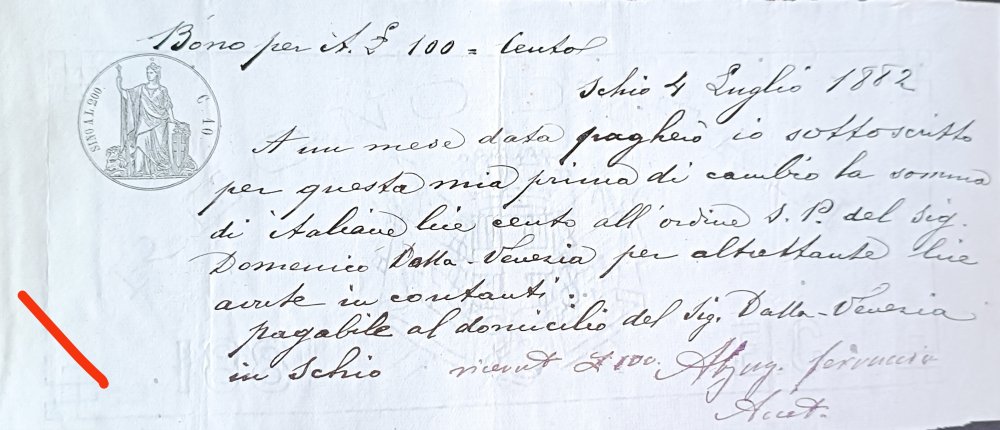 Bono per it. £ 100 = Cento
Schio 4 Luglio 1882
SINO A L. 200
C. 10
A un mese data pagherò io sottoscritto
per questa mia prima di cambio la somma
di italiane lire cento all'ordine S. P. del Sig.
Domenico Dalla-Venezia per altrettante lire
avute in contanti:
pagabile al domicilio del Sig. Dalla-Venezia
in Schio
£ 100. Ferruccio